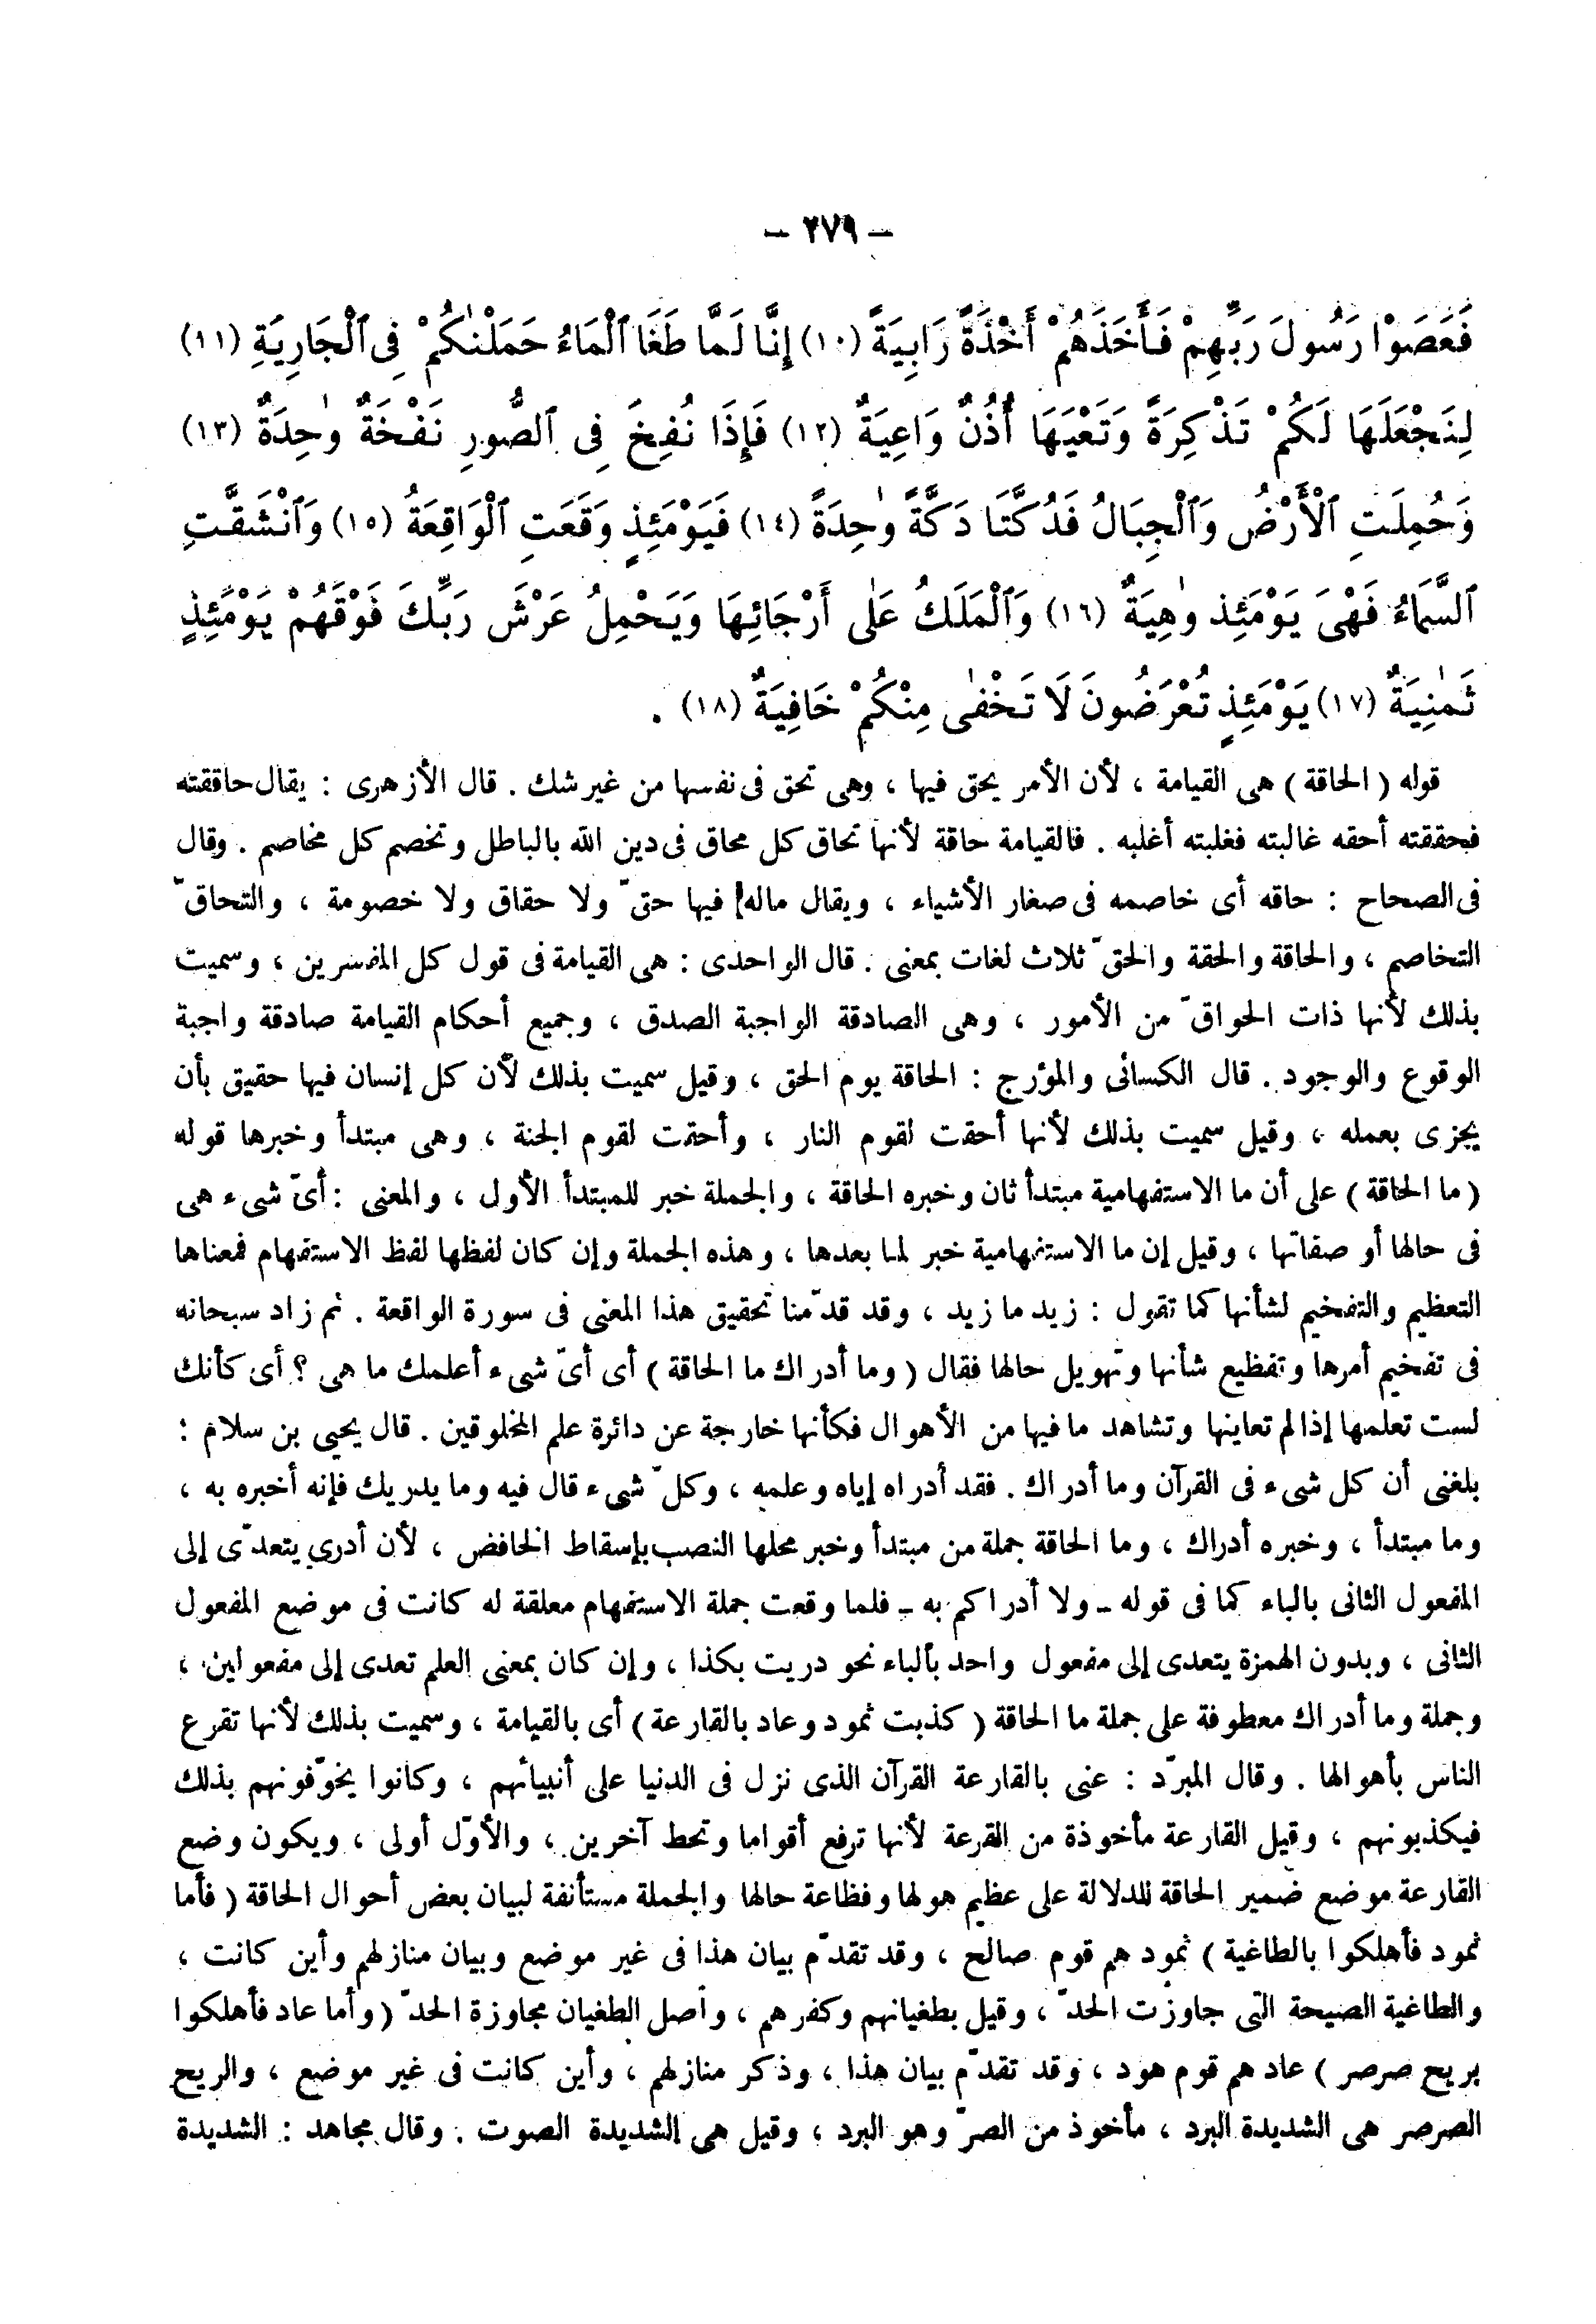 – ٢٧٩ –
فَعَصَوْا رَسُولَ رَبِّهِمْ فَأَخَذَهُمْ أَخْذَةً رَابِيَةً (١٠) إِنَّا لَمَّا طَغَا ٱلْمَاءُ حَمَلْنٰكُمْ فِى ٱلْجَارِيَةِ (١١)
لِنَجْعَلَهَا لَكُمْ تَذْكِرَةً وَتَعْيَهَا أُذُنٌ وَاعِيَةٌ (١٢) فَإِذَا نُفِخَ فِى ٱلصُّورِ نَفْخَةٌ وٰحِدَةٌ (١٣)
وَحُمِلَتِ ٱلْأَرْضُ وَٱلْجِبَالُ فَدُكَّتَا دَكَّةً وٰحِدَةً (١٤) فَيَوْمَئِذٍ وَقَعَتِ ٱلْوَاقِعَةُ (١٥) وَٱنْشَقَّتِ
ٱلسَّمَاءُ فَهْىَ يَوْمَئِذٍ وٰهِيَةٌ (١٦) وَٱلْمَلَكُ عَلٰى أَرْجَائِهَا وَيَحْمِلُ عَرْشَ رَبِّكَ فَوْقَهُمْ يَوْمَئِذٍ
ثَمٰنِيَةٌ (١٧) يَوْمَئِذٍ تُعْرَضُونَ لَا تَخْفٰى مِنْكُمْ خَافِيَةٌ (١٨) .
قوله ( الحاقة ) هى القيامة ، لأن الأمر يحق فيها ، وهى تحق فى نفسها من غير شك . قال الأزهرى : يقال حاققته
فحققته أحقه غالبته فغلبته أغلبه . فالقيامة حاقة لأنها تحاق كل محاق فى دين الله بالباطل وتخصم كل مخاصم . وقال
فى الصحاح : حاقه أى خاصمه فى صغار الأشياء ، ويقال ماله فيها حقّ ولا حقاق ولا خصومة ، والتحاقّ
التخاصم ، والحاقة والحقة والحقّ ثلاث لغات بمعنى . قال الواحدى : هى القيامة فى قول كل المفسرين ، وسميت
بذلك لأنها ذات الحواقّ من الأمور ، وهى الصادقة الواجبة الصدق ، وجميع أحكام القيامة صادقة واجبة
الوقوع والوجود . قال الكسائى والمؤرج : الحاقة يوم الحق ، وقيل سميت بذلك لأن كل إنسان فيها حقيق بأن
يجزى بعمله ، وقيل سميت بذلك لأنها أحقت لقوم النار ، وأحقت لقوم الجنة ، وهى مبتدأ وخبرها قوله
( ما الحاقة ) على أن ما الاستفهامية مبتدأ ثان وخبره الحاقة ، والجملة خبر للمبتدأ الأول ، والمعنى : أىّ شىء هى
فى حالها أو صفاتها ، وقيل إن ما الاستفهامية خبر لما بعدها ، وهذه الجملة وإن كان لفظها لفظ الاستفهام فمعناها
التعظيم والتفخيم لشأنها كما تقول : زيد ما زيد ، وقد قدّمنا تحقيق هذا المعنى فى سورة الواقعة . ثم زاد سبحانه
فى تفخيم أمرها وتفظيع شأنها وتهويل حالها فقال ( وما أدراك ما الحاقة ) أى أىّ شىء أعلمك ما هى ؟ أى كأنك
لست تعلمها إذا لم تعاينها وتشاهد ما فيها من الأهوال فكأنها خارجة عن دائرة علم المخلوقين . قال يحيى بن سلام :
بلغنى أن كل شىء فى القرآن وما أدراك . فقد أدراه إياه وعلمه ، وكلّ شىء قال فيه وما يدريك فإنه أخبره به ،
وما مبتدأ ، وخبره أدراك ، وما الحاقة جملة من مبتدأ وخبر محلها النصب بإسقاط الخافض ، لأن أدرى يتعدّى إلى
المفعول الثانى بالباء كما فى قوله ـ ولا أدراكم به ـ فلما وقعت جملة الاستفهام معلقة له كانت فى موضع المفعول
الثانى ، وبدون الهمزة يتعدى إلى مفعول واحد بالباء نحو دريت بكذا ، وإن كان بمعنى العلم تعدى إلى مفعولين ،
وجملة وما أدراك معطوفة على جملة ما الحاقة ( كذبت ثمود وعاد بالقارعة ) أى بالقيامة ، وسميت بذلك لأنها تقرع
الناس بأهوالها . وقال المبرّد : عنى بالقارعة القرآن الذى نزل فى الدنيا على أنبيائهم ، وكانوا يخوّفونهم بذلك
فيكذبونهم ، وقيل القارعة مأخوذة من القرعة لأنها ترفع أقواما وتحط آخرين ، والأوّل أولى ، ويكون وضع
القارعة موضع ضمير الحاقة للدلالة على عظيم هولها وفظاعة حالها والجملة مستأنفة لبيان بعض أحوال الحاقة ( فأما
ثمود فأهلكوا بالطاغية ) ثمود هم قوم صالح ، وقد تقدّم بيان هذا فى غير موضع وبيان منازلهم وأين كانت ،
والطاغية الصيحة التى جاوزت الحدّ ، وقيل بطغيانهم وكفرهم ، وأصل الطغيان مجاوزة الحدّ ( وأما عاد فأهلكوا
بريح صرصر ) عاد هم قوم هود ، وقد تقدّم بيان هذا ، وذكر منازلهم ، وأين كانت فى غير موضع ، والريح
الصرصر هى الشديدة البرد ، مأخوذ من الصرّ وهو البرد ، وقيل هى الشديدة الصوت . وقال مجاهد : الشديدة